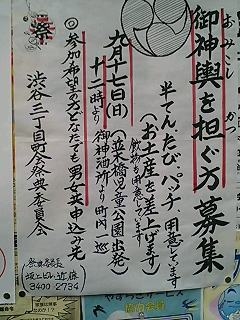 御神輿を担ぐ方募集
おみこし
かつ
半てん、たび、パッチ、用意しています
飲物も用意しています
(お土産を差上げます)
九月十七日(日)(並木橋児童公園出発)
十二時より御神酒所より町内一巡
◎参加希望の方どなたでも男女共申込み先
渋谷三丁目町会祭典委員会
坂上ビル近藤
3400-2734
祭